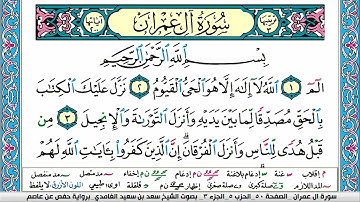 سُورَةُ آلِ عِمْرَان
بِسْمِ اللَّهِ الرَّحْمَٰنِ الرَّحِيمِ
الٓمٓ ١ اللَّهُ لَا إِلَٰهَ إِلَّا هُوَ الْحَيُّ الْقَيُّومُ ٢ نَزَّلَ عَلَيْكَ الْكِتَابَ
بِالْحَقِّ مُصَدِّقًا لِّمَا بَيْنَ يَدَيْهِ وَأَنزَلَ التَّوْرَىٰةَ وَالْإِنجِيلَ ٣ مِن
قَبْلُ هُدًى لِّلنَّاسِ وَأَنزَلَ الْفُرْقَانَ إِنَّ الَّذِينَ كَفَرُوا بِآيَاتِ اللَّهِ لَهُمْ
سورة آل عمران - الصفحة ٥٠ - الحزب ٥ - الجزء ٣ - بصوت الشيخ سعد بن سعيد الغامدي - برواية حفص عن عاصم